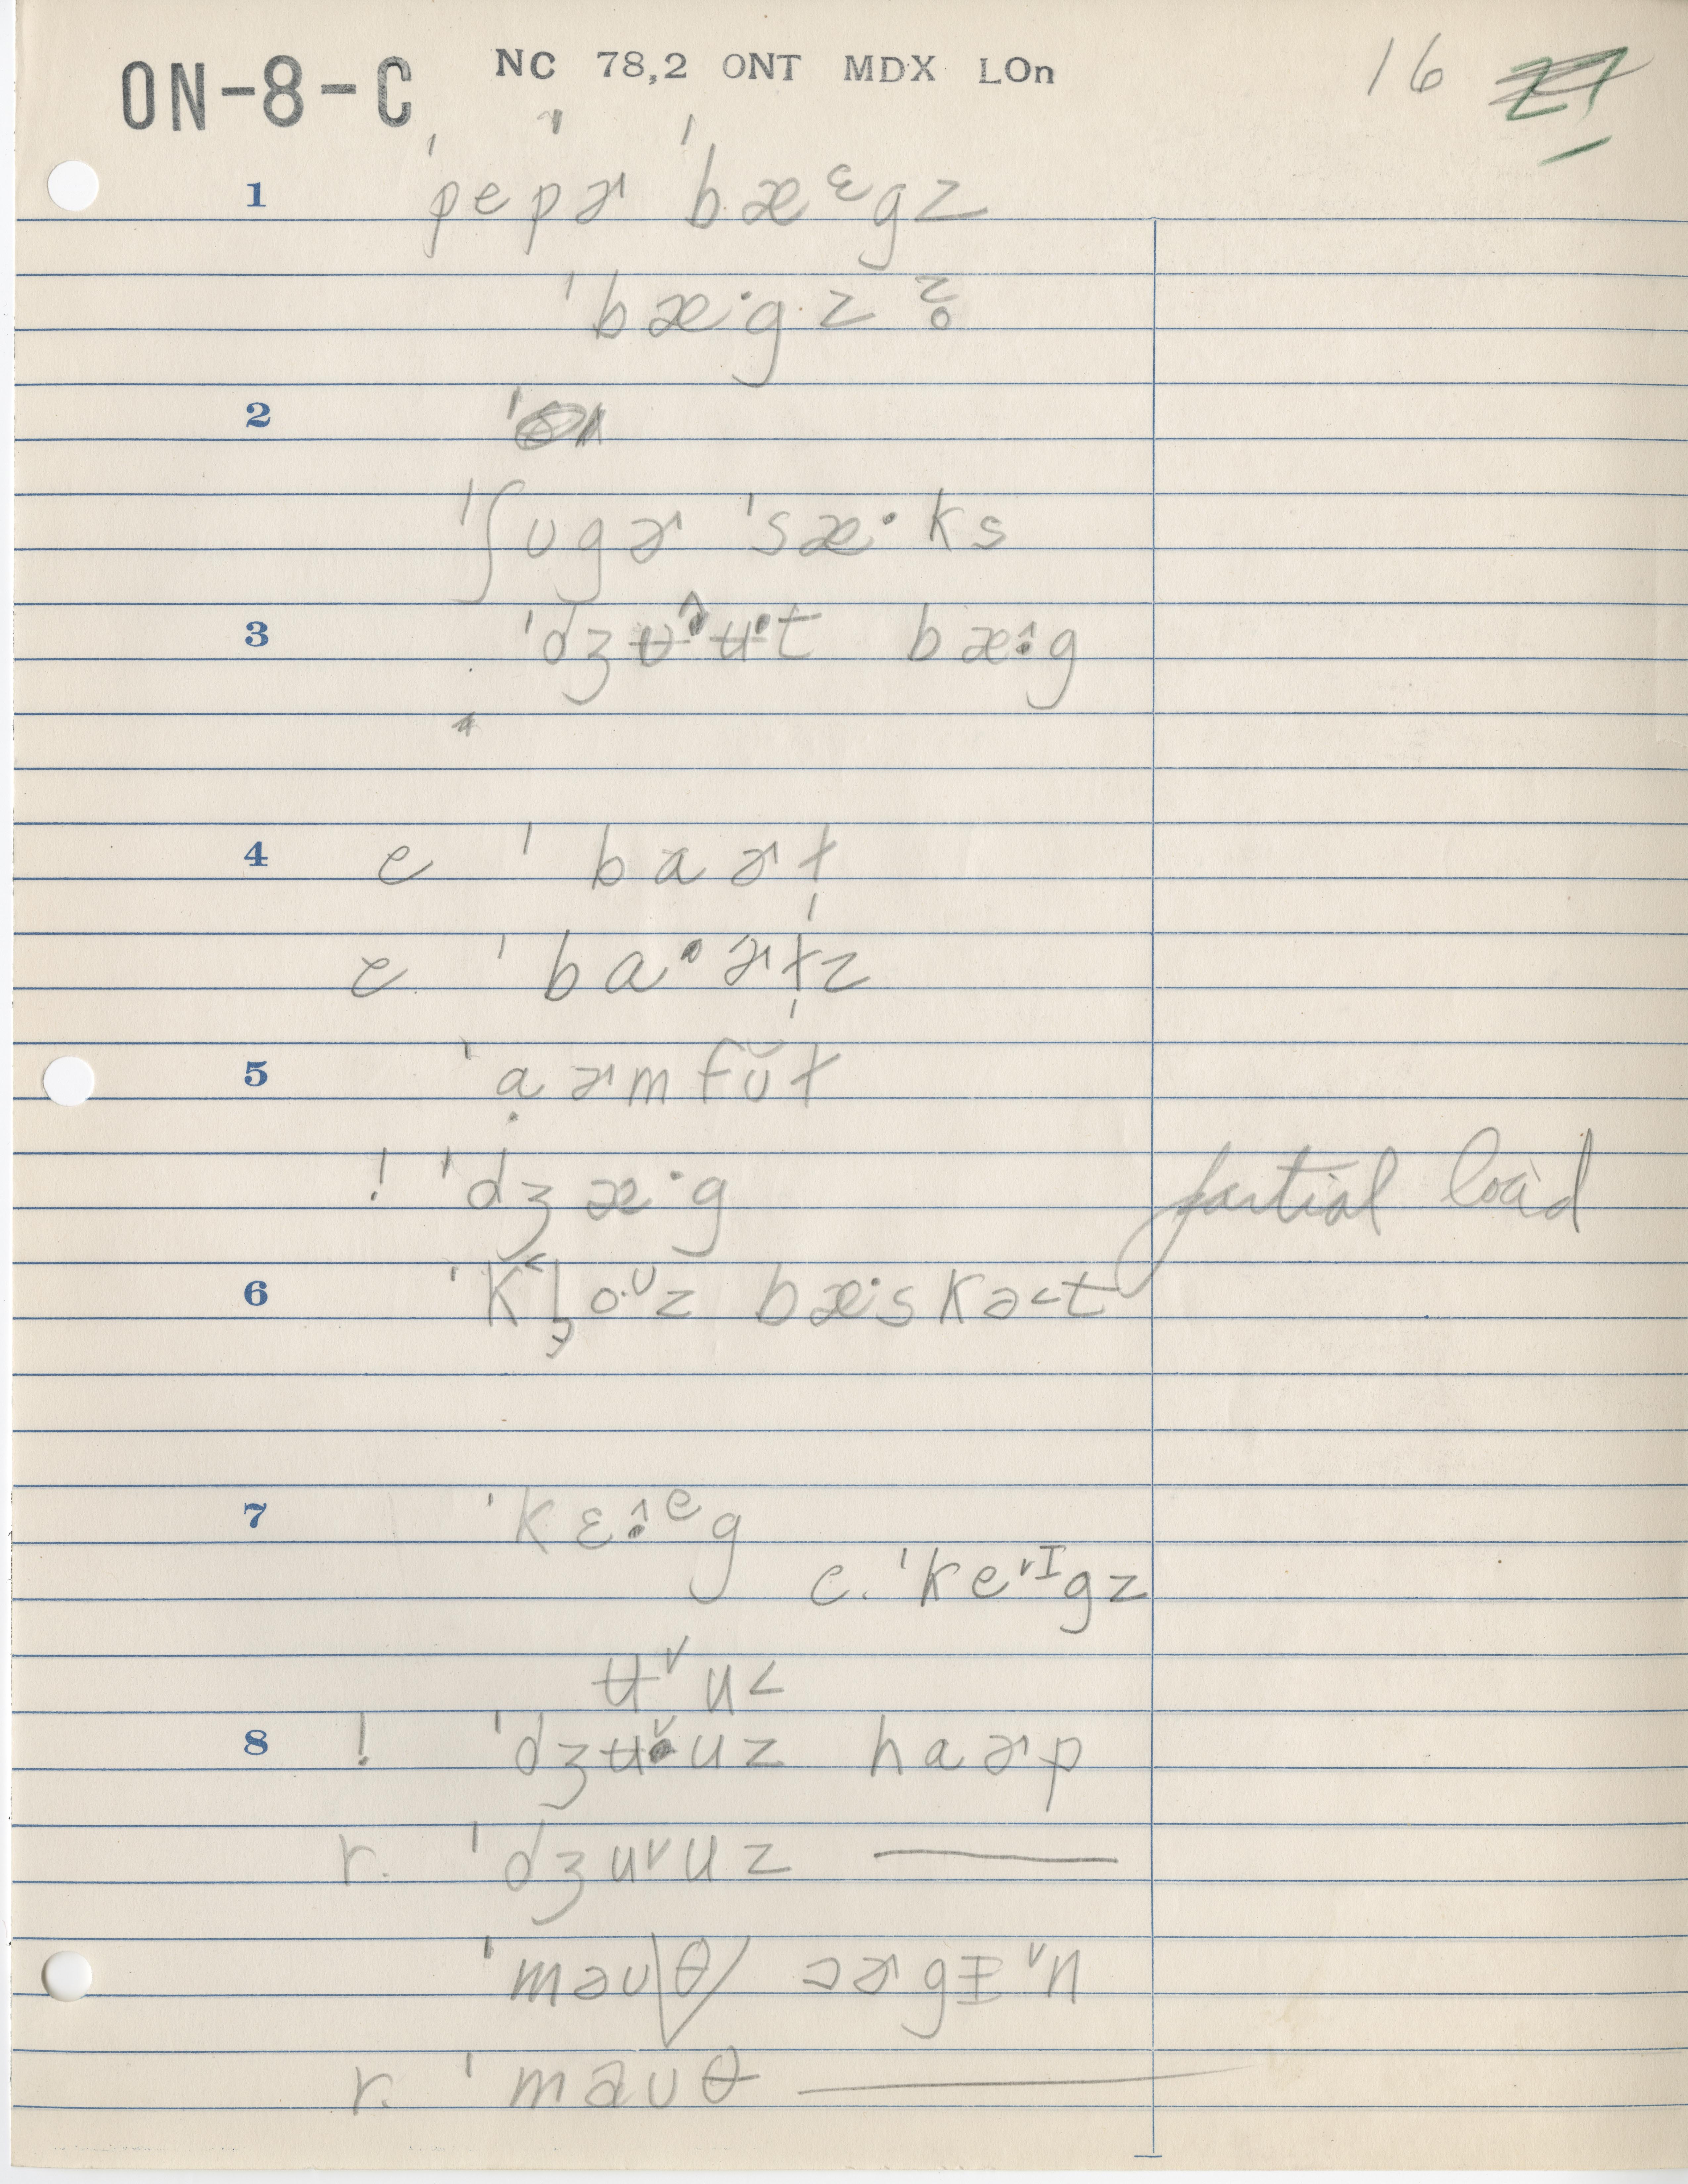 ON-8-C NC 78,2 ONT MDX LOn 16
1 ˈpepɚ ˈbæᵋgz
ˈbæ·g·z z̥
2
ˈʃʊgɚ ˈsæ·ks
3 bæ:g
4 c ˈbaɚɫ
c ˈba·ɚɫz
5 ˈạɚmfʊ̆ɫ
! ˈdʒæ·g partial load
6 bæ·skə˂t
7 ˈkɛ:ᵉg
c. ˈke˅ᴵgz
ʉ˅uz
8 ! ˈdʒʉ˅uz haɚp
r. ˈdʒu˅uz ———
ˈməʊθ ɔɚgɪ˅n
r. ˈmaʊθ ———